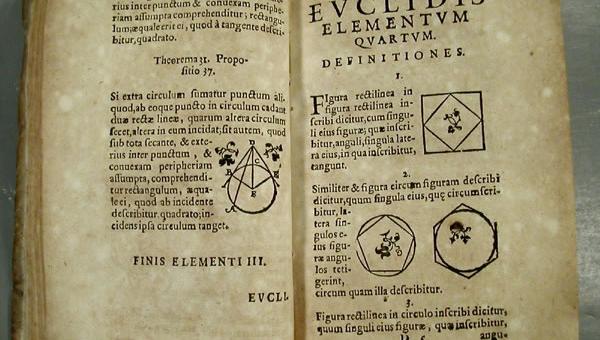 rius inter punctum & conuexam periphe-
riam assumpta comprehenditur; rectangu-
lum, æquale erit ei, quod à tangente descri-
bitur, quadrato.
Theorema 31. Propo-
sitio 37.
Si extra circulum sumatur punctum ali-
quod, ab eoque puncto in circulum cadant
duæ rectæ lineæ, quarum altera circulum
secet, altera in eum incidat; sit autem, quod
sub tota secante, & exte-
rius inter punctum, &
conuexam peripheriam
assumpta, comprehendi-
tur rectangulum, æqua-
le ei, quod ab incidente
describitur quadrato; in-
cidens ipsa circulum tanget.
D
C
B
E
A
FINIS ELEMENTI III.
EVCLI-
EVCLIDIS
ELEMENTVM
QVARTVM.
DEFINITIONES.
1.
Figura rectilinea in
figura rectilinea in-
scribi dicitur, cum singu-
li eius figuræ, quæ inscri-
bitur, anguli, singula late-
ra eius, in qua inscribitur,
tangunt.
2.
Similiter & figura circum figuram describi
dicitur, quum singula eius, quę circumscri-
bitur, la-
tera sin-
gulos e-
ius figu-
ræ angu-
los teti-
gerint,
circum quam illa describitur.
3.
Figura rectilinea in circulo inscribi dicitur,
quum singuli eius figuræ, quæ inscribitur,
angu-